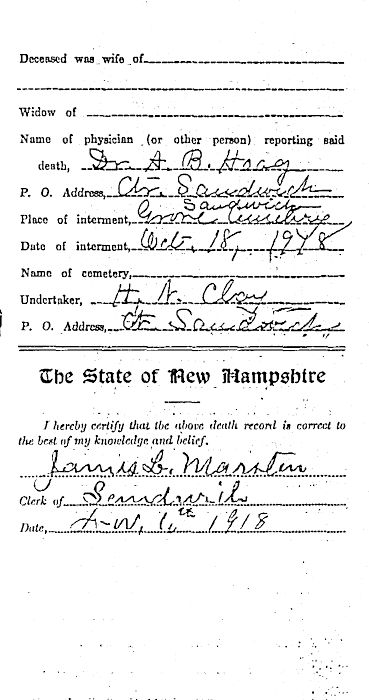 Deceased was wife of
Widow of
Name of physician (or other person) reporting said
death, Dr. A. B. Hoag
P. O. Address, Ctr. Sandwich
Sandwich
Place of interment, Grove Cemetery
Date of interment, Oct. 18, 1918
Name of cemetery,
Undertaker, H. A. Clay
P. O. Address, Ctr Sandwich
The State of New Hampshire
I hereby certify that the above death record is correct to
the best of my knowledge and belief.
James L. Marston
Clerk of Sandwich
Date, 6th 1918